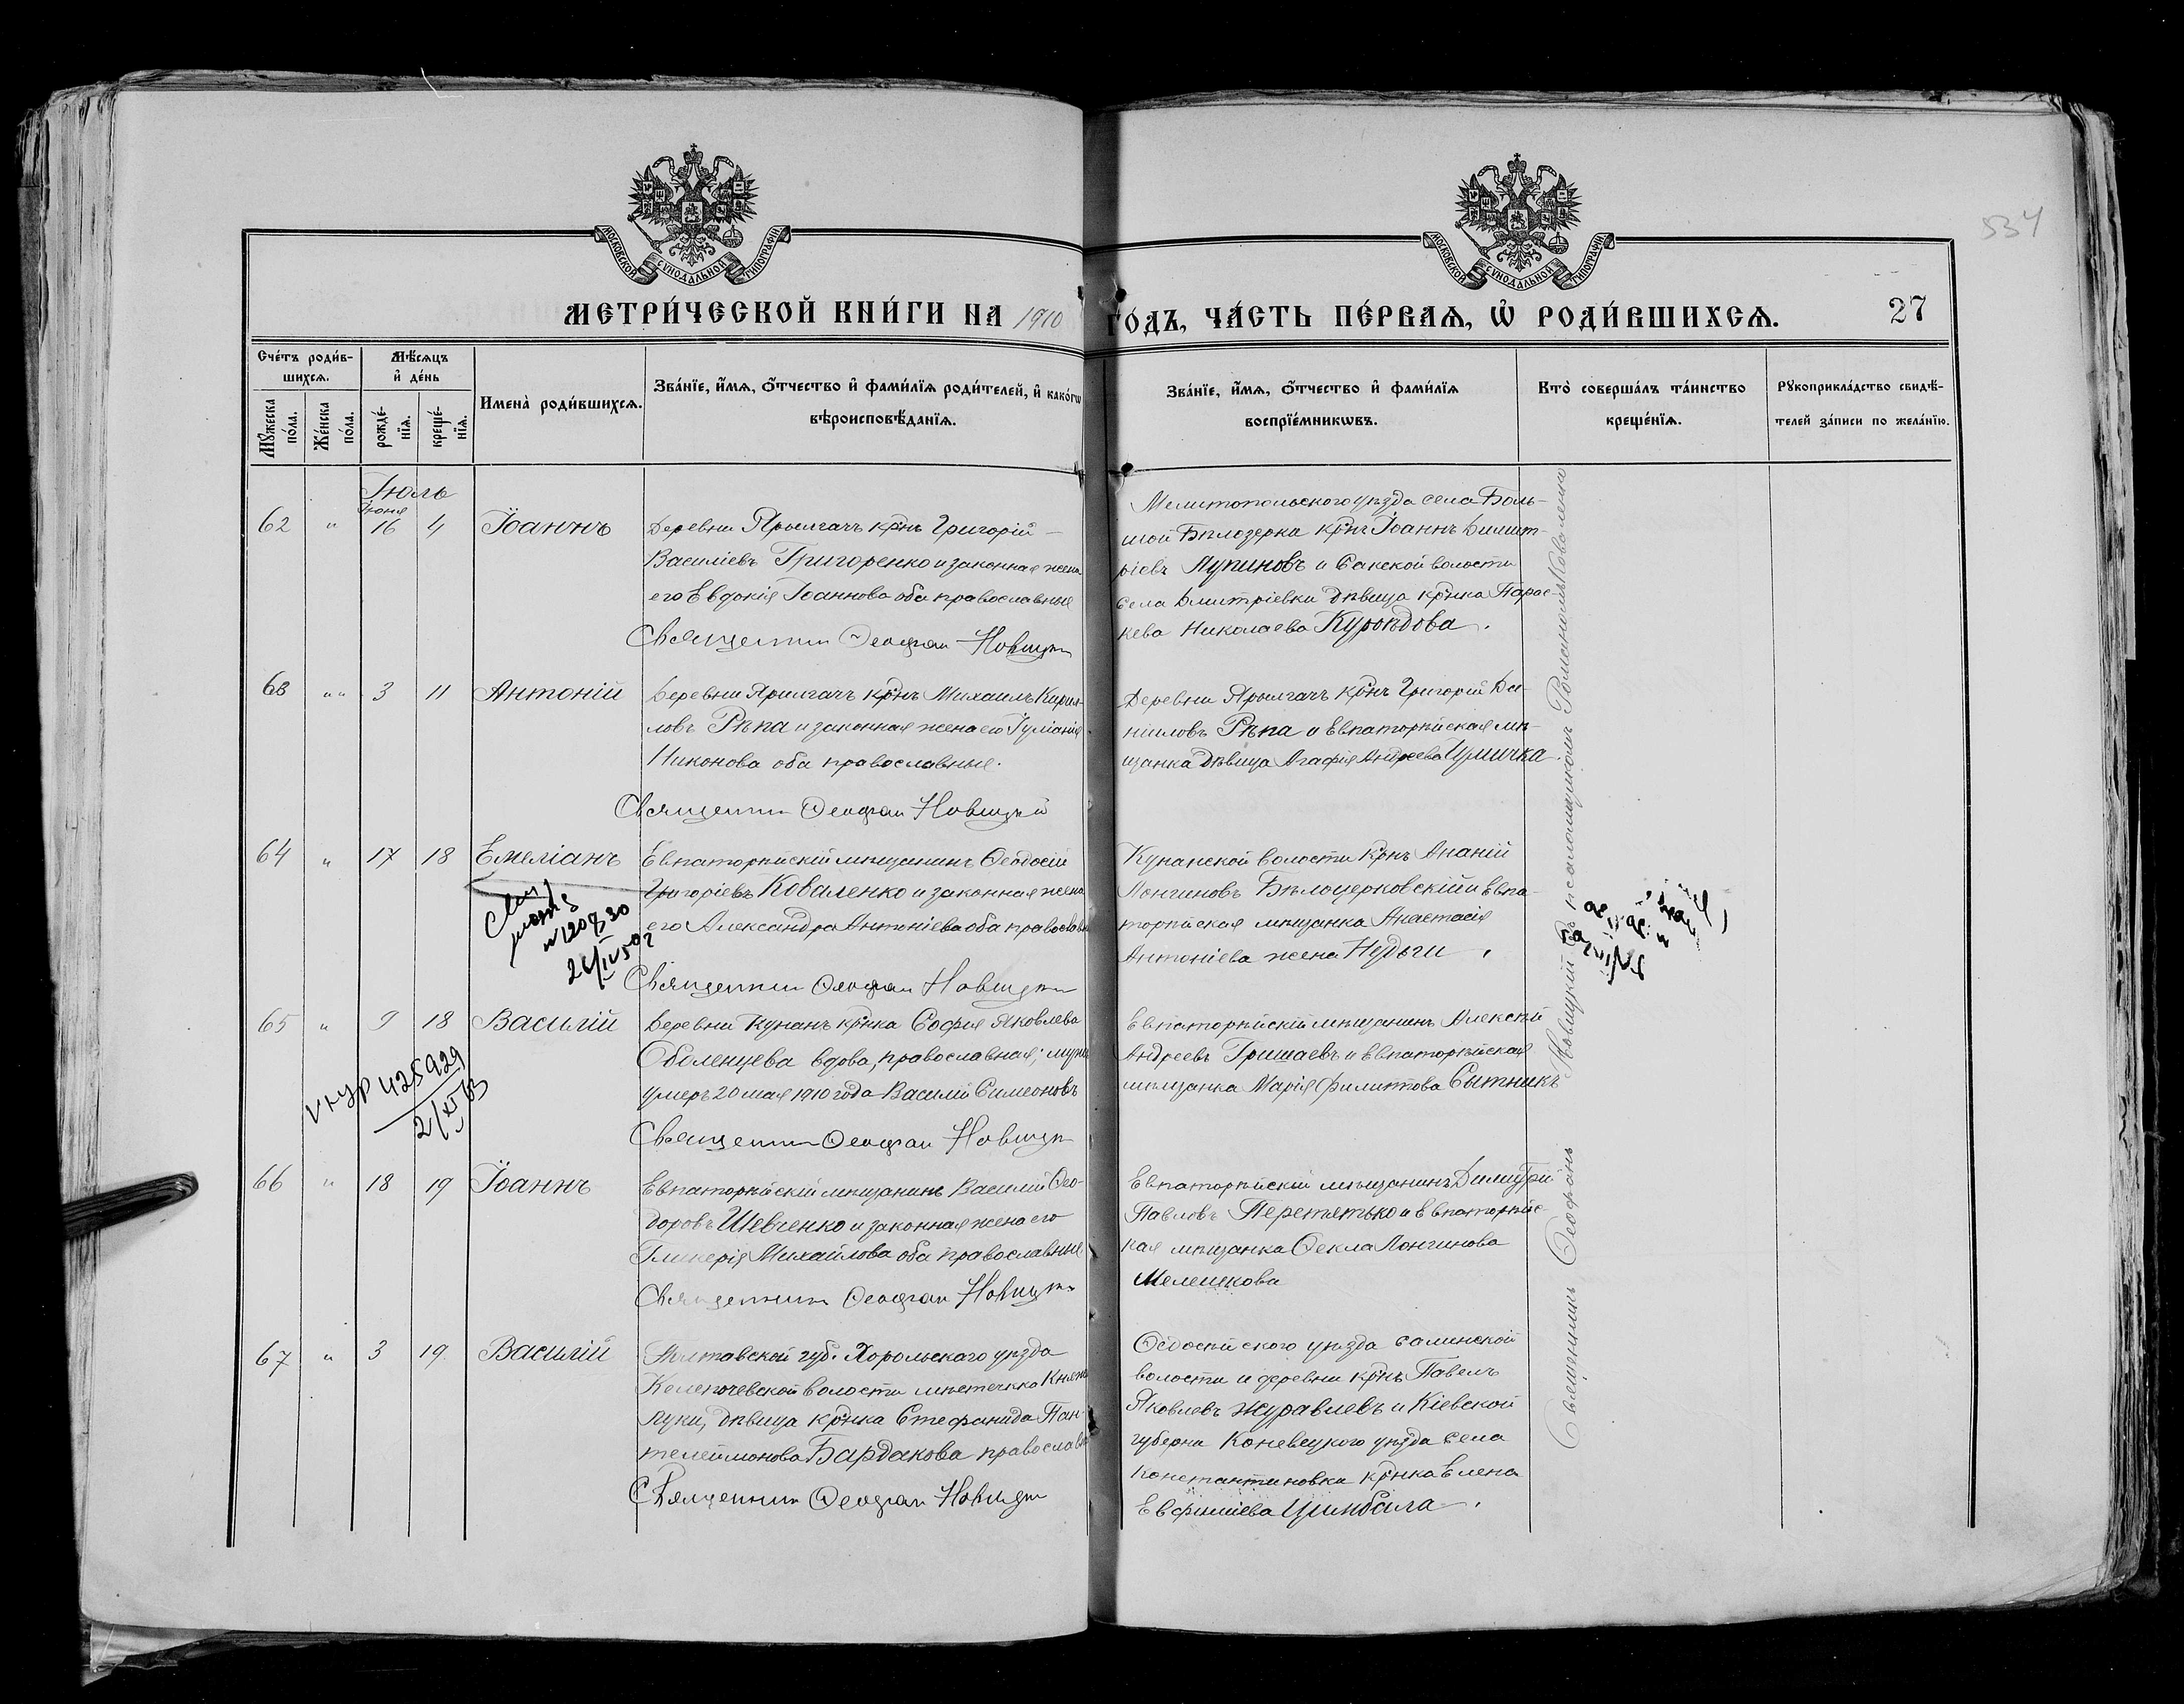 534
МОСКОВСКОЙ СѴНОДАЛЬНОЙ ТИПОГРАФІИ
МОСКОВСКОЙ СѴНОДАЛЬНОЙ ТИПОГРАФІИ
МЕТРИ́ЧЕСКОЙ КНИ́ГИ НА 1910 ГО́ДЪ, ЧА́СТЬ ПЕ́РВАѦ, Ѡ҆ РОДИ́ВШИХСѦ.
27
Сче́тъ роди́в-
шихсѧ.
Мꙋ́жеска по́ла.
Же́нска по́ла.
Мѣ́сѧцъ
и҆ де́нь
рожде́-
нїѧ.
креще́-
нїѧ.
Имена̀ роди́вшихсѧ.
Зва́нїе, и҆́мѧ, ѻ҆́тчество и҆ фами́лїѧ роди́телей, и҆ како́гѡ
вѣроисповѣ́данїѧ.
Зва́нїе, и҆́мѧ, ѻ҆́тчество и҆ фами́лїѧ
воспрїе́мникѡвъ.
Кто̀ соверша́лъ та́инство
креще́нїѧ.
Рꙋкоприкла́дство свидѣ́-
телей за́писи по жела́нїю.
Іюль
Іюня
62 " 16 4 Іоаннъ
Деревни Ярылгачъ крнъ Григорій
Василіевъ Григоренко и законная жена
его Евдокія Іоаннова оба православные
Священник Феофан Новицкий
Мелитопольского уѣзда села Боль-
шой Бѣлозерки крнъ Іоаннъ Димит-
ріевъ Лупиновъ и Сакской волости
села Дмитріевки дѣвица крнка Парас-
кева Николаева Куроѣдова.
63 "" 3 11 Антоній
Деревни Ярылгачъ крнъ Михаилъ Кирил-
ловъ Рѣпа и законная жена его Іуліанія
Никонова оба православные.
Священник Феофан Новицкий
Деревни Ярылгачъ крнъ Григорій Да-
ніиловъ Рѣпа и Евпаторійская мѣ-
щанка дѣвица Агафія Андреева
64 " 17 18 Емеліанъ
Евпаторійскій мѣщанинъ Феодосій
Григоріевъ Коваленко и законная жена
его Александра Антоніева оба православн
Священник Феофан Новицкий
Кунанской волости крнъ Ананій
Лонгиновъ Бѣлоцерковскій и Евпа-
торійская мѣщанка Анастасія
Антоніева жена Нудьги.
65 " 9 18 Василій
Деревни Кунанъ крнка Софія Яковлева
Оболенцева вдова, православная; мужъ
умеръ 20 мая 1910 года Василій Симеоновъ
Священник Феофан Новицкий
Евпаторійскій мѣщанинъ Алексѣй
Андреевъ Гришаевъ и Евпаторійская
мѣщанка Марія Филиппова Сытникъ
66 " 18 19 Іоаннъ
Евпаторійскій мѣщанинъ Василій Фео-
доровъ Шевченко и законная жена его
Гликерія Михайлова оба православные
Священник Феофан Новицкий
Евпаторійскій мѣщанинъ Димитрій
Павловъ Перетятько и Евпаторійс-
кая мѣщанка Фекла Лонгинова
Мелешкова
67 " 3 19 Василій
Полтавской губ. Хорольскаго уѣзда
волости мѣстечко Княжа
Луки, дѣвица крнка Стефанида Пан-
телеймонова Бардакова православн
Священник Феофан Новицкий
Феодосійского уѣзда Салинской
волости и деревни крнъ Павелъ
Яковлевъ Журавлевъ и Кіевской
губерни Каневецкого уѣзда села
Константиновки крнка Елена
Евфиміева Цимбала.
Священникъ Феофанъ Новицкій съ псаломщикомъ Коваленко